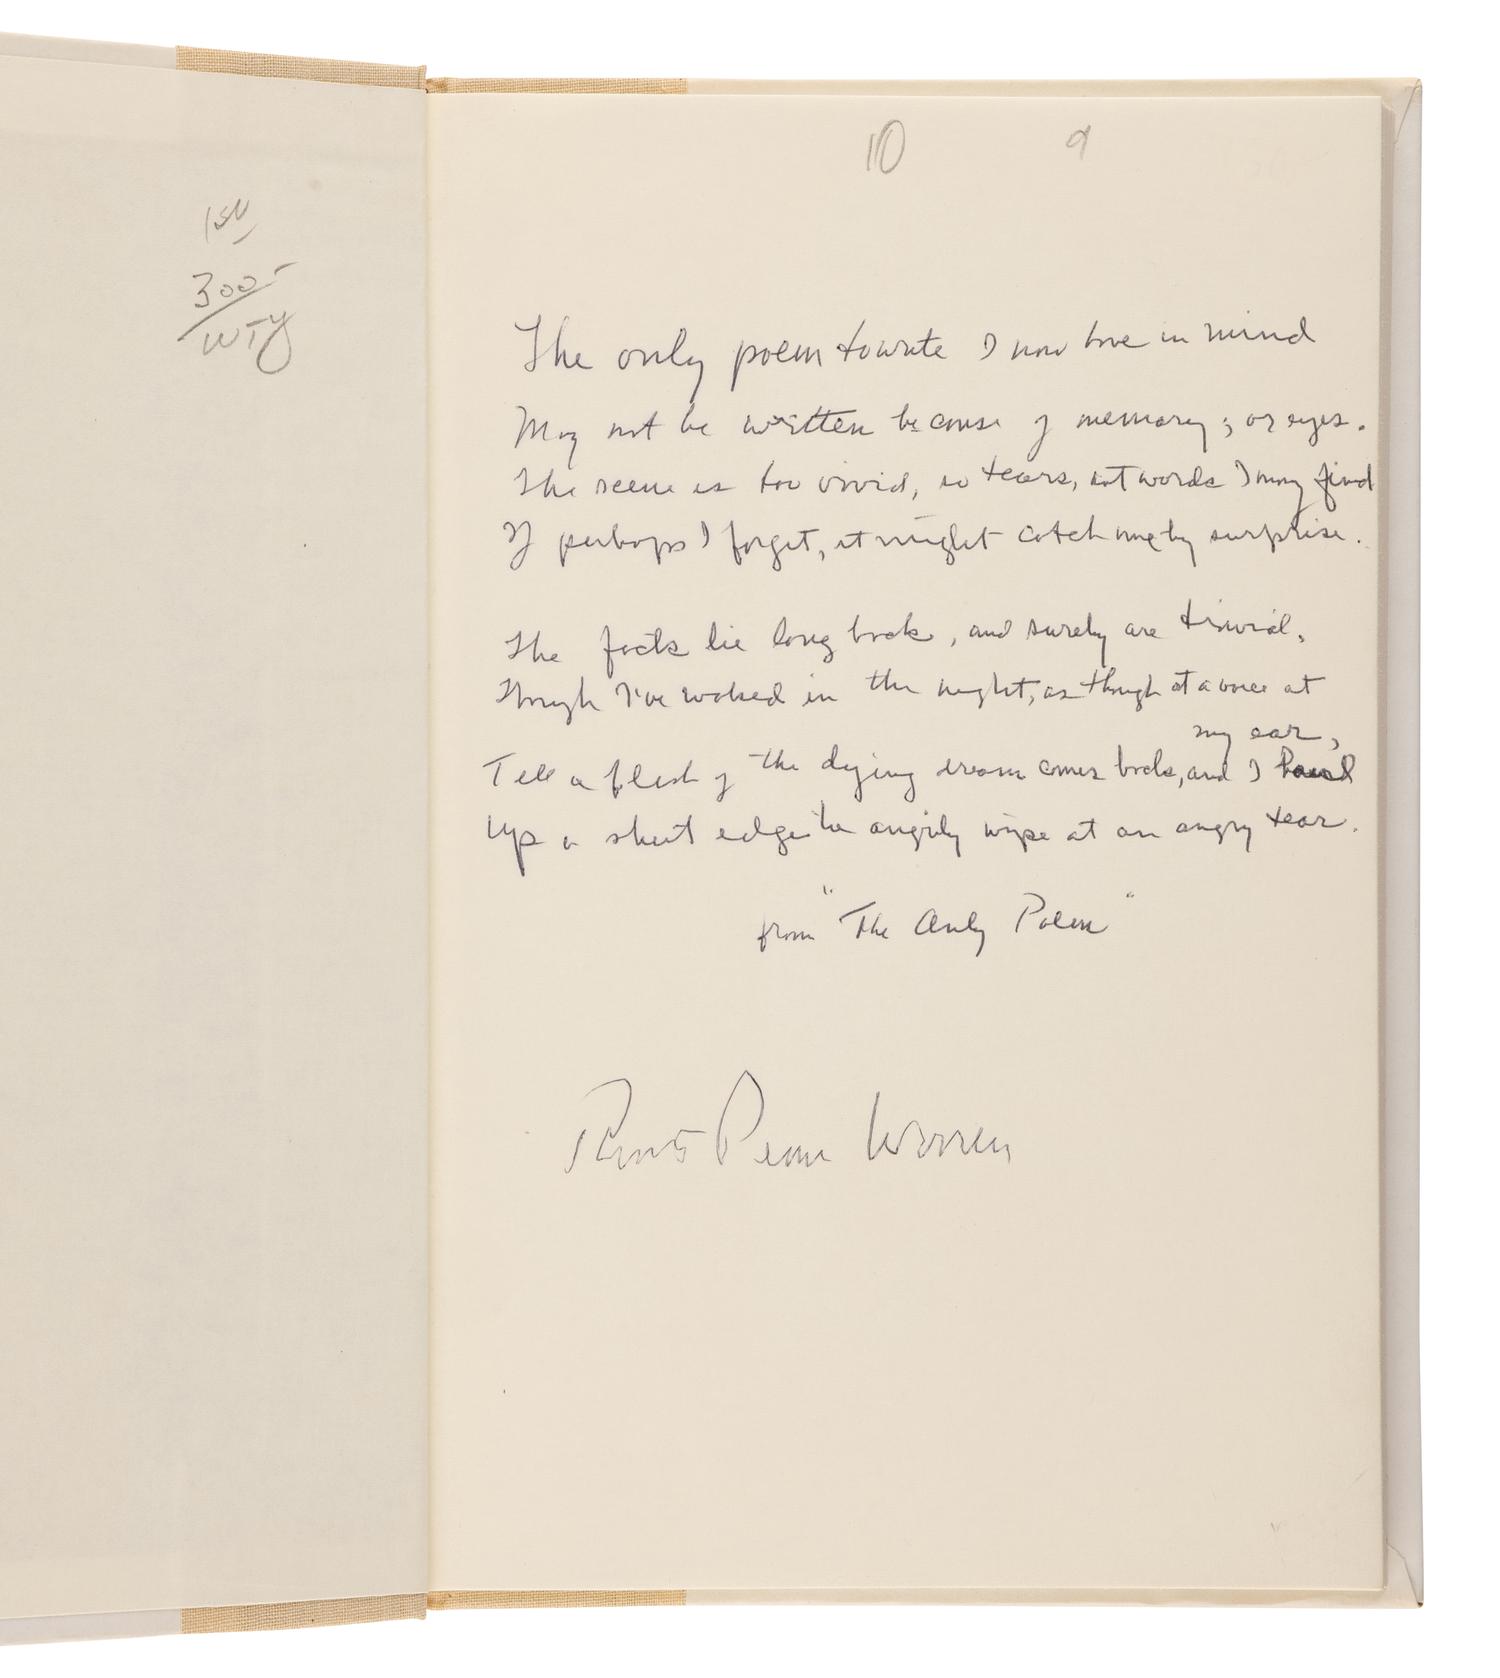 1st
300-
WTY
10 9
The only poem to write I now have in mind
May not be written because of memory; or eyes.
The scene is too vivid, so tears, not words I may find
If perhaps I forget, it might catch me by surprise.
The facts lie long back, and surely are trivial,
Though I've waked in the night, as though at a voice at
my ear,
Till a flash of the dying dream comes back, and I haul
Up a sheet edge to angrily wipe at an angry tear.
from "The Only Poem"
Robert Penn Warren